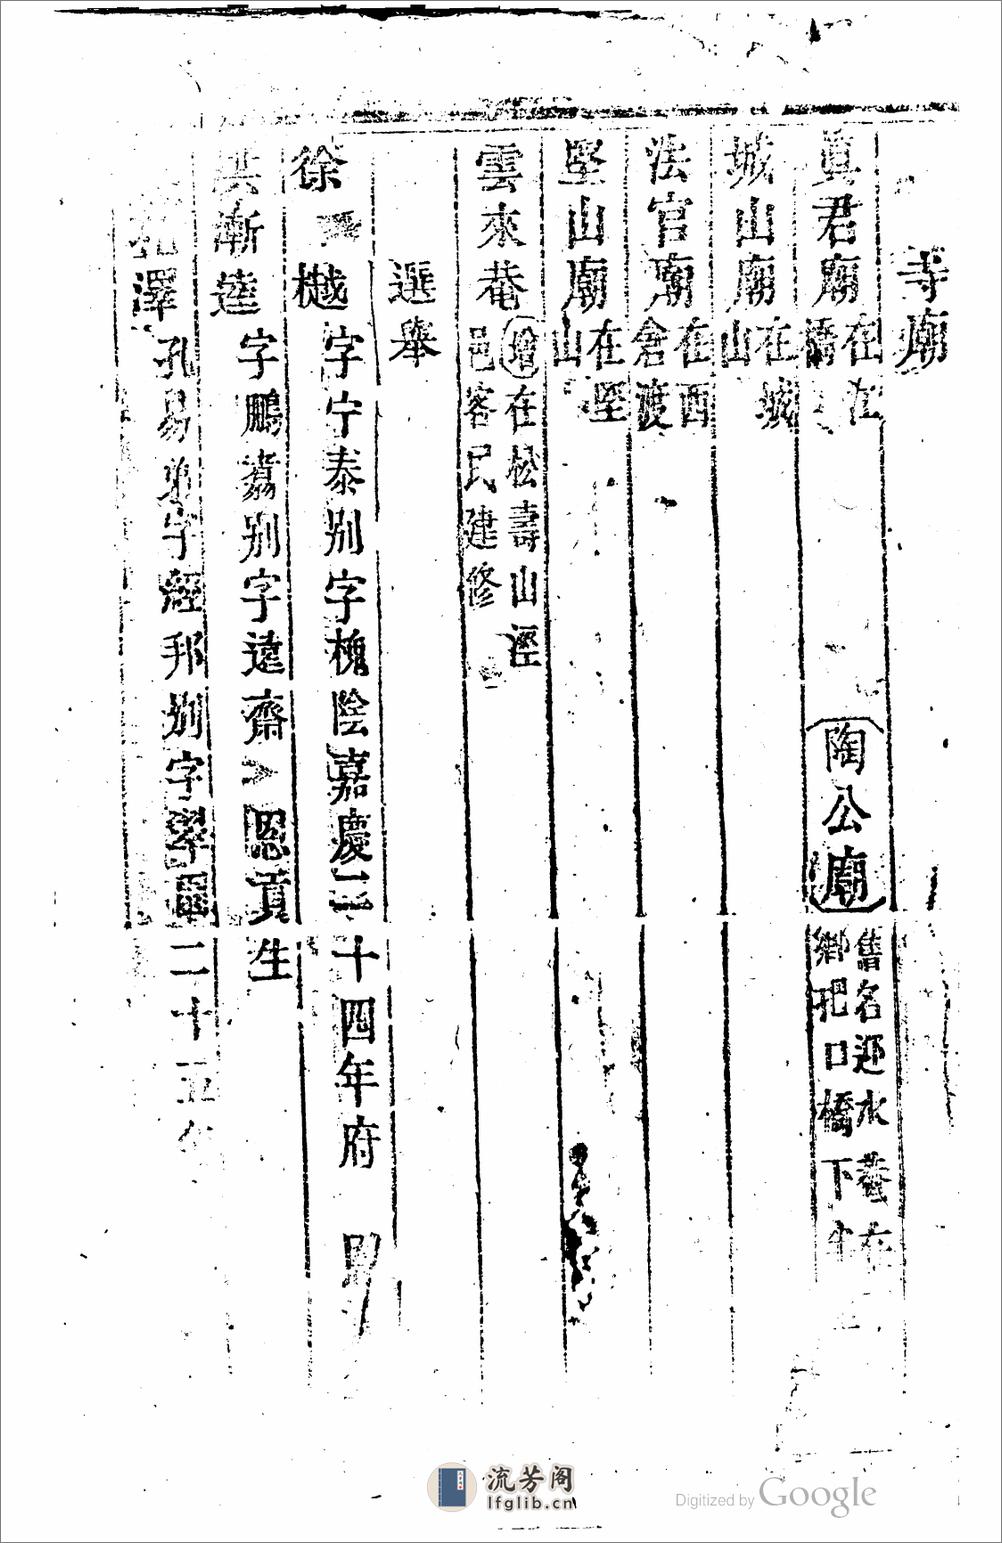 寺廟
真君廟在江橋
陶公廟舊名迎水菴在鄉孔口橋下
城山廟在城山
法官廟在西倉渡
堅山廟在堅山
雲來菴增在松壽山涇邑客民建修
選舉
徐樾字宁泰别字槐陰嘉慶二十四年府
洪漸逵字鵬翥别字逵齋恩貢生
澤孔易弟字經邦别字翠屏二十五年
流芳阁
lfglib.cn
Digitized by Google